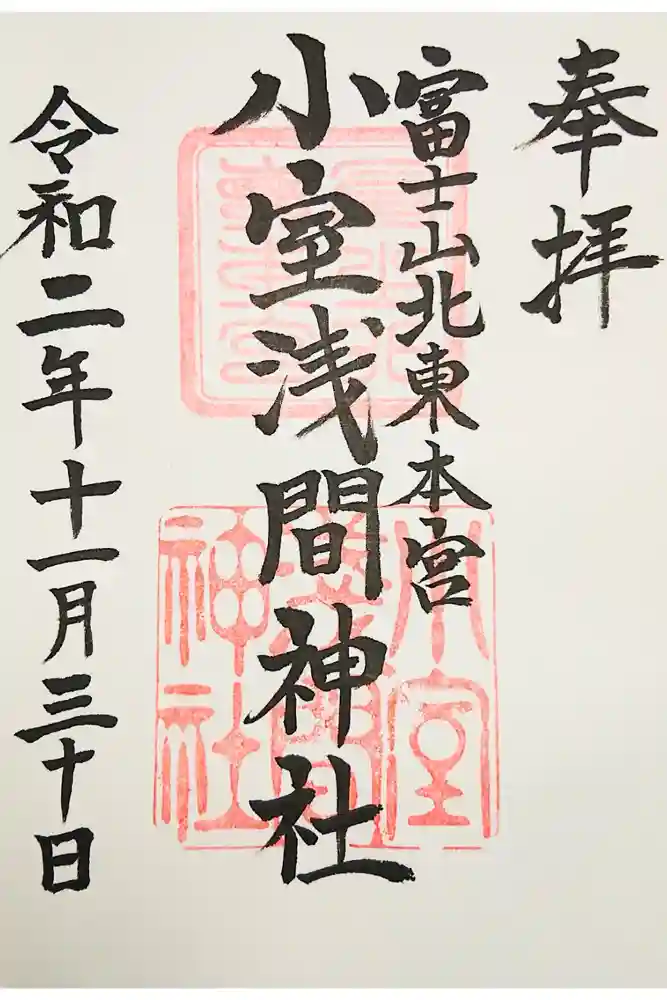 奉拝
富士山北東本宮
小室浅間神社
令和二年十一月三十日
小室
浅間
神社